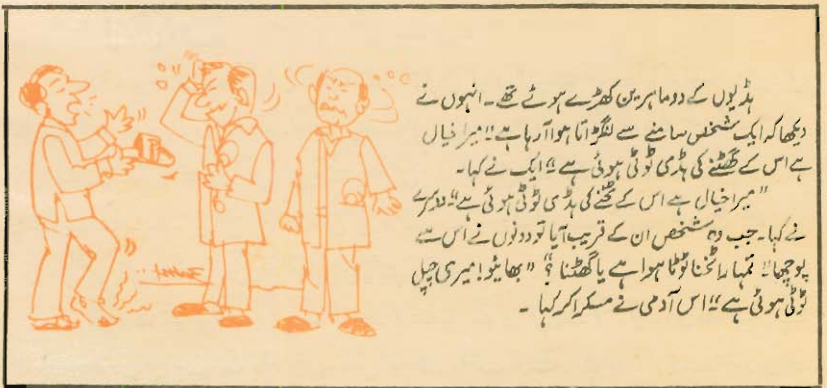 ہڈیوں کے دو ماہرین کھڑے ہوئے تھے۔ انہوں نے
دیکھا کہ ایک شخص سامنے سے لنگڑاتا ہوا آ رہا ہے "میرا خیال
ہے اس کے گھٹنے کی ہڈی ٹوٹی ہوئی ہے" ایک نے کہا۔
"میرا خیال ہے اس کے ٹخنے کی ہڈی ٹوٹی ہوئی ہے" دوسرے
نے کہا۔ جب وہ شخص ان کے قریب آیا تو دونوں نے اس سے
پوچھا "تمہارا ٹخنا ٹوٹا ہوا ہے یا گھٹنا ؟" "بھائیو! میری چپل
ٹوٹی ہوئی ہے" اس آدمی نے مسکرا کر کہا ۔